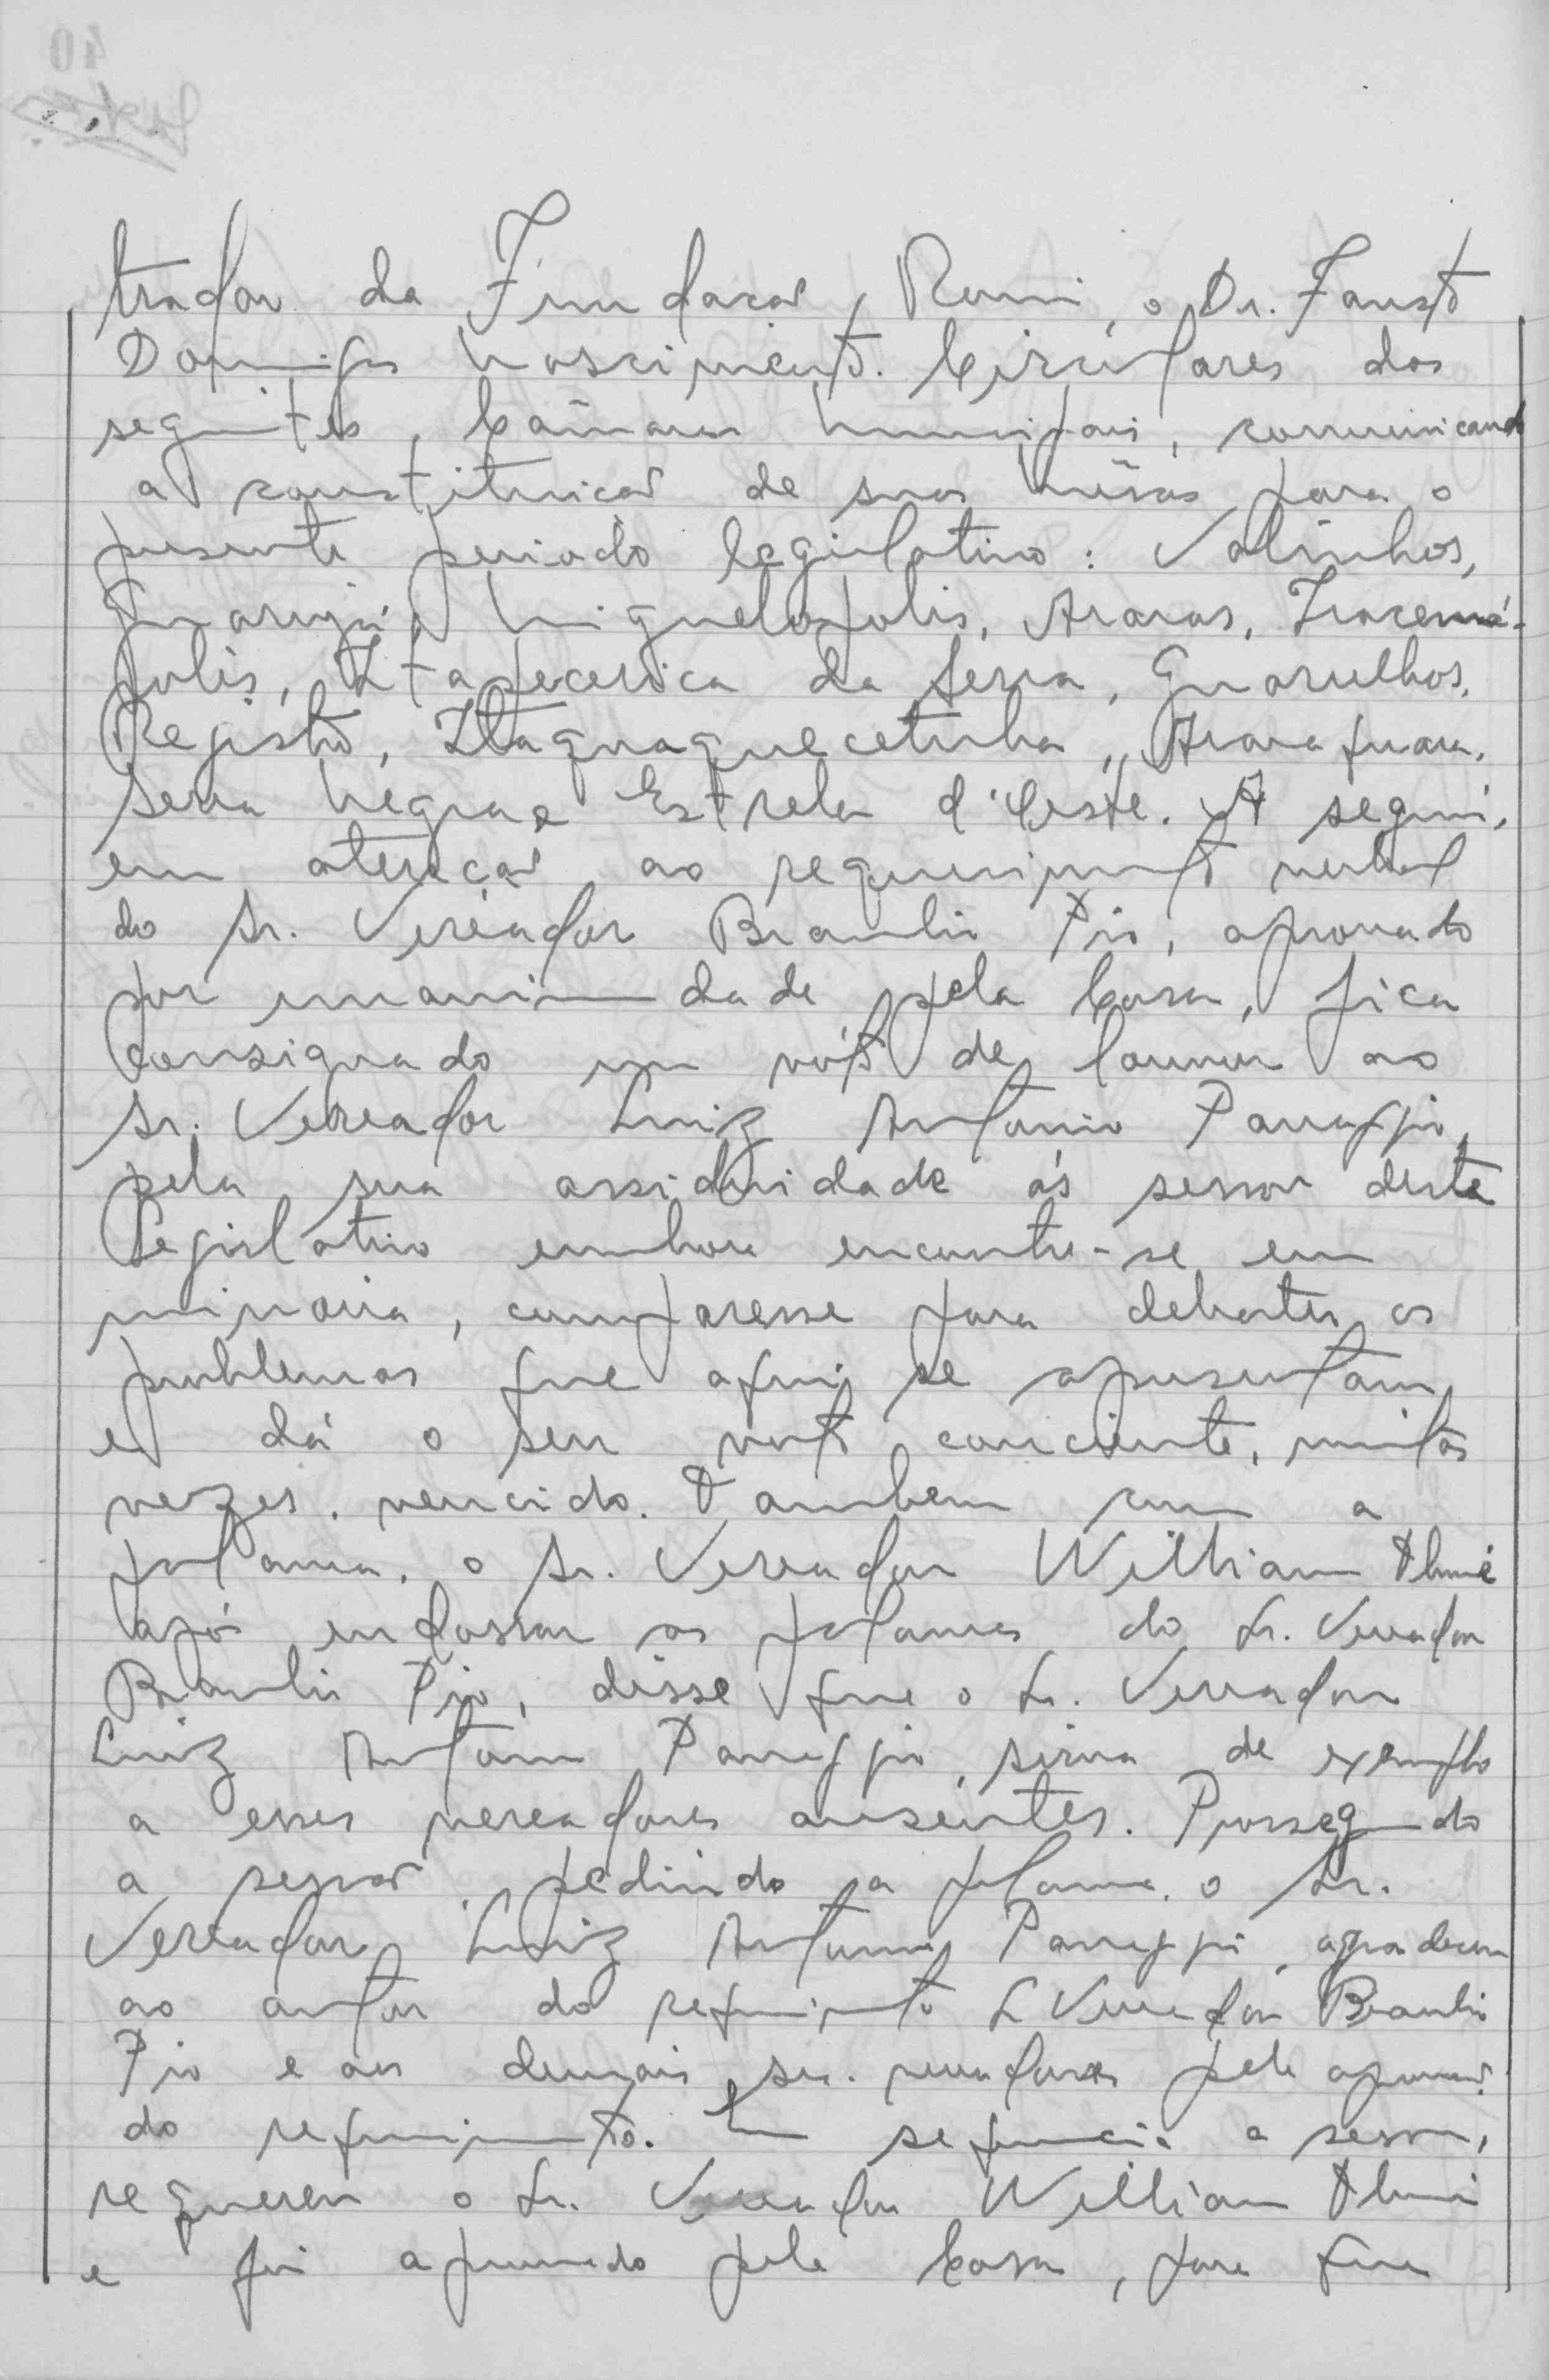 trador da Fundacão Romi, o Dr. Fausto
Domingos Nascimento. Circulares das
seguintes, Camaras Municipais, comunicando
a constituicão de suas mêsas para o
presente periodo legislativo: Valinhos,
Guarujá, Miguelopolis, Araras, Iracemá-
polis, Itapecerica da Serra, Guarulhos,
Registro, Itaquaquecetuba, Araraquara,
Serra Negra e Estrela d'Oeste. A seguir,
em atencão ao requerimento verbal
do Sr. Vereador Braulio Pio, aprovado
por unanimidade pela Casa, fica
consignado um vóto de louvor ao
Sr. Vereador Luiz Antonio Panaggio,
pela sua assiduidade ás sessoes deste
Legislativo embora encontre-se em
minoria, comparesse para debater os
problemas que aqui se apresentam
e dá o seu voto conciente, muitas
vezes, vencido. Tambem com a
palavra, o Sr. Vereador William
após endossar as palavras do Sr. Vereador
Braulio Pio, disse que o Sr. Vereador
Luiz Antonio Panaggio, sirva de exemplo
a esses vereadores ausentes. Prosseguindo
a sessão, pedindo a palavra, o Sr.
Vereador Luiz Antonio Panaggio, agradeceu
ao autor do requerimento Sr Vereador Braulio
Pio e aos demais srs. vereadores pela aprovacão
do requerimento. Em sequencia a sessão,
requereu o Sr. Vereador William
e foi aprovado pela Casa, para que